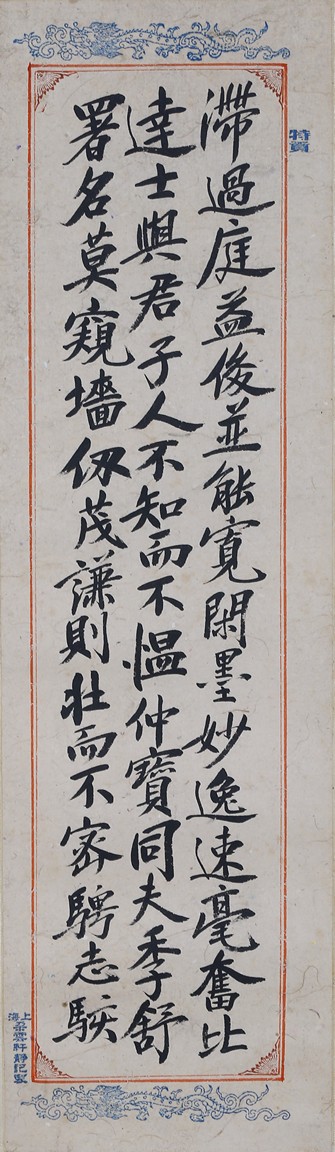 滯過庭益俊並能寬閑墨妙逸速毫奮比
達士與君子人不知而不愠仲寶同夫季舒
署名莫窺墻仞茂謙則壯而不密騁志駭
上海朵雲軒靜記製